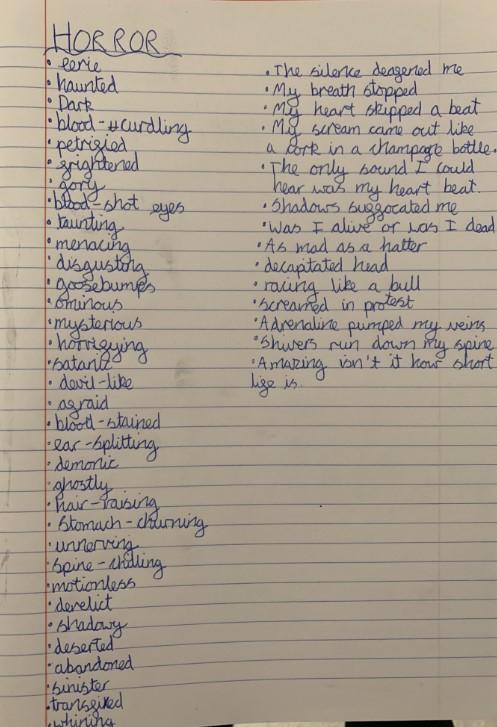 HORROR
• eerie
• haunted
• Dark
• blood-curdling
• petrified
• frightened
• gory
• blood-shot eyes
• taunting
• menacing
• disgusting
• goosebumps
• ominous
• mysterious
• horrifying
• satanic
• devil-like
• afraid
• blood-stained
• ear-splitting
• demonic
• ghostly
• hair-raising
• Stomach-churning
• unnerving
• Spine-chilling
• motionless
• derelict
• shadowy
• deserted
• abandoned
• sinister
• transfixed
• whining
• The silence deafened me
• My breath stopped
• My heart skipped a beat
• My scream came out like
a cork in a champagne bottle.
• The only sound I could
hear was my heart beat.
• Shadows suffocated me
• Was I alive or was I dead
• As mad as a hatter
• decapitated head
• racing like a bull
• screamed in protest
• Adrenaline pumped my veins
• Shivers run down my spine
• Amazing isn't it how short
life is.